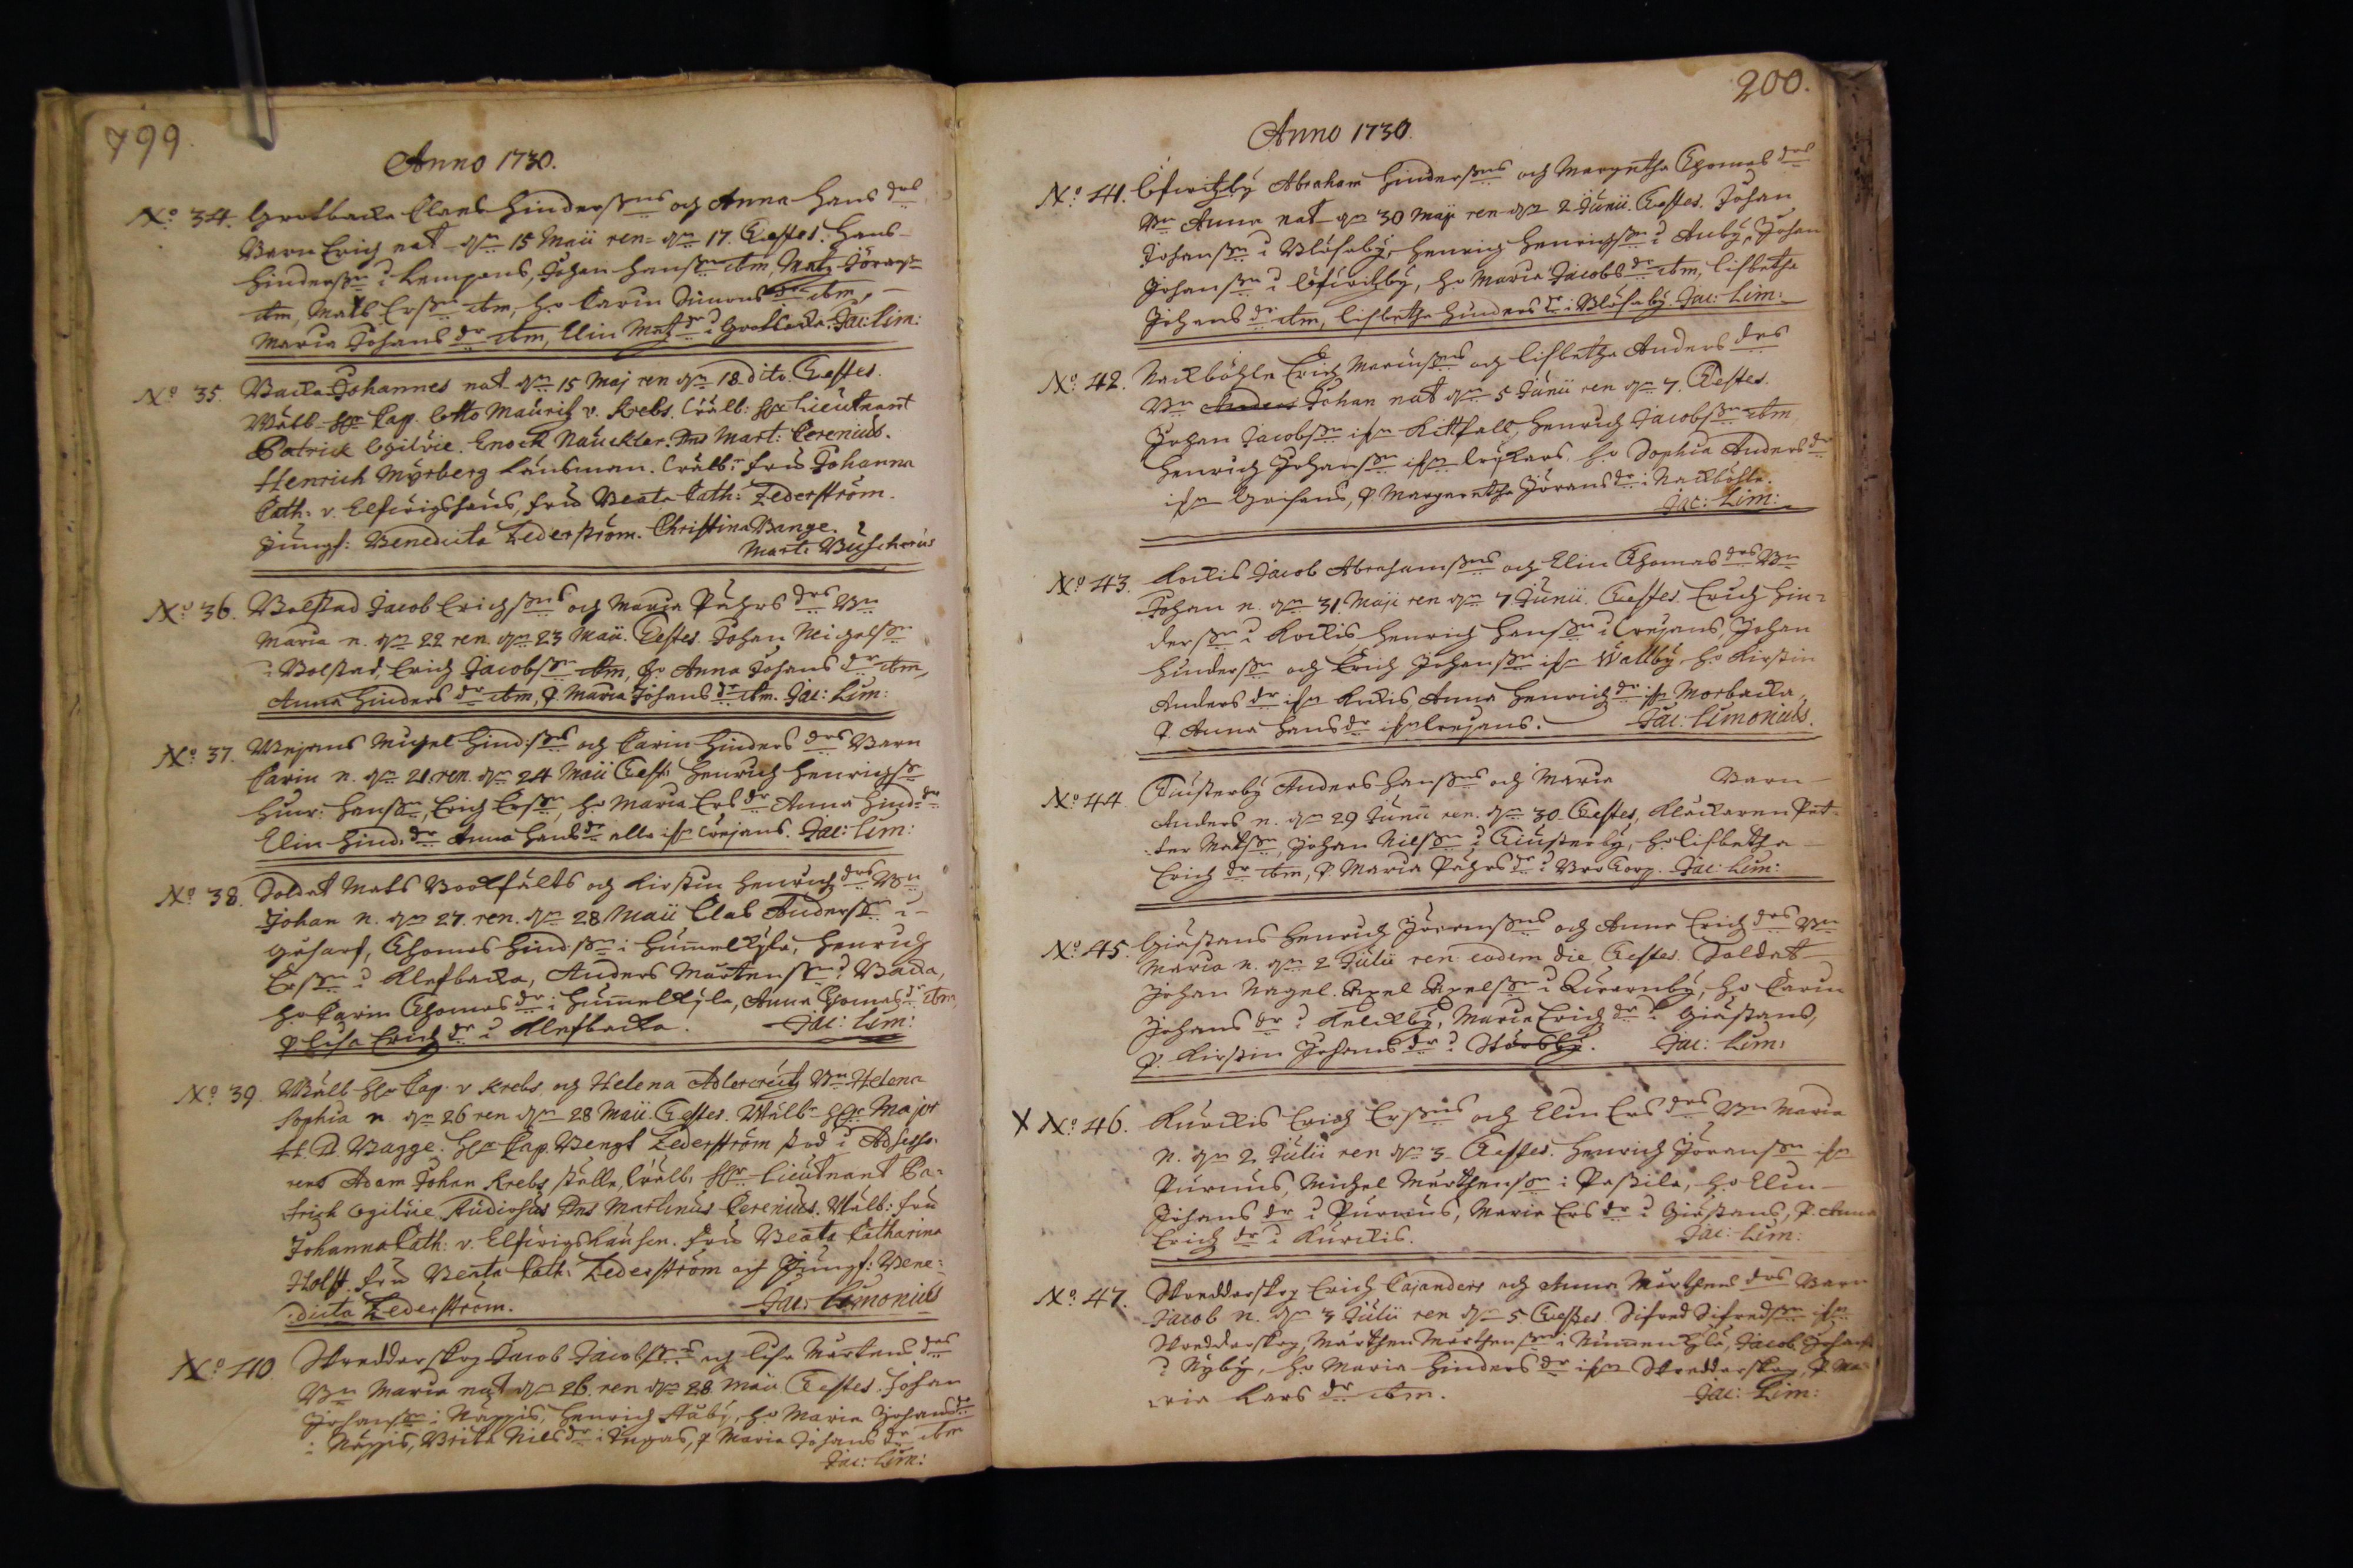 799.
Anno 1730.
No 34. Grotbacka Claes Hinderssns och Anna Hans drs
Barn Erich nat. d. 15 Maii ren. d. 17. Testes. Hans
Hinderssn i Kempans, Johan Hanssn ibm, Matz Jöranssn
ibm, Matts Erssn ibm, h. Carin Simons dr ibm,
Maria Johans dr ibm, Elin Matz dr i Grotbacka. Jac: Lim:
No 35. Backa Johannes nat d. 15 Maj ren d. 18 dito. Testes.
Wälb. Hr Cap. Otto Mauritz v. Krebs. Wälb: Hr Lieutnant
Patrick Ogilvie. Enock Nauckler. Dns Mart: Cerenius.
Henrich Myrberg Länsman. Wälb: fru Johanna
Cath: v. Elfwrigshaus, fru Beata Cath: Zederström.
Jungf: Benedicta Zederström. Christina Bange
Mart: Buscherus
No 36. Bolstad Jacob Erichssns och Maria Påhrs drs Bn
Maria n. d. 22 ren. d. 23 Maii. Testes Johan Michelssn
i Bolstad, Erich Jacobssn ibm, h. Anna Johans dr ibm,
Anna Hinders dr ibm, P. Maria Johans dr ibm. Jac: Lim:
No 37. Michel Hind:ssns och Carin Hinders drs Barn
Carin n. d. 21. ren. d. 24 Maii Test: Henrich Henrichssn
Hinr: Hanssn, Erich Erssn, h. Maria Ers dr Anna Hind: dr
Elin Hind: dr Anna Hans dr alla ifrn Trejans. Jac: Lim:
No 38. Soldat Mats Bookfälts och Kirstin Henrich drs Bn
Johan n. d. 27. ren. d. 28 Maii Clas Anderssn i
Thomas Hind:ssn i Hummelkyla, Henrich
Erssn i Klefbacka, Anders Mårtenssn i Backa,
h. Carin Thomas dr i Hummelkyla, Anna Thomas dr ibm,
P Lisa Erich dr i Klefbacka. Jac: Lim:
No 39. Wälb. Hr Cap. v Krebs och Helena Adlercreutz Bn Helena
Sophia n d. 26 ren d. 28 Maii. Testes. Wälb: Hr Major
H. D. Bagge. Hr Cap. Bengt Zederström stod i Adsesso-
rens Adam Johan Krebs ställe, Wälb: Hr Lieutnant Pa-
trich Ogilvie Studiosus Dns Martinus Cerenius. Wälb: fru
Johanna Cath: v. Elfwrigshausen. fru Beata Catharina
Holst. fru Beata Cath: Zederström och Jungf: Bene-
dicta Zederström. Jac: Limonius
No 40. Skreddarskog Jacob Jacobssns och Lisa Mårtens drs
Bn Maria nat d. 26. ren d. 28 Maii Testes. Johan
Johanssn i Näppis, Henrich Åby, h. Maria Johans dr
i Näppis, Brita Nils dr i Ingas, P Maria Johans dr ibm
Jac: Lim:
200.
Anno 1730.
No 41. Ofwitzby Abraham Hinderssns och Margretha Thomas drs
Bn Anna nat d. 30 Maji ren d. 2 Junii. Testes. Johan
Johanssn i Blåsaby, Henrich Henrichssn i Anby, Johan
Johanssn i Ofwitzby, h. Maria Jacobs dr ibm, Lisbetha
Johans dr ibm, Lisbetha Hinders dr i Blåsaby. Jac: Lim:
No 42. Nackböhle Erich Mariussns och Lisbetha Anders drs
Bn Anders Johan nat d. 5 Junii ren d. 7. Testes.
Johan Jacobssn ifrn Kittfall, Henrich Jacobssn ibm,
Henrich Johanssn ifrn h. Sophia Anders dr
ifrn Grefans, P. Margaretha Jörans dr i Nackböhle.
Jac: Lim:
No 43. Kockis Jacob Abrahamssns och Elin Thomas drs Bn
Johan n. d. 31. Maji ren d. 7 Junii. Testes. Erich Hin-
derssn i Kockis, Henrich Hanssn i Trejans, Johan
Hinderssn och Erich Johanssn ifrn Wallby h. Kirstin
Anders dr ifrn Kockis Anna Henrich dr ifrn Morbacka,
P. Anna Hans dr ifrn Trejans. Jac: Limonius.
No 44. Tiusterby Anders Hanssns och Maria Barn
Anders n. d. 29 Junii ren. d. 30. Testes, Klåckaren Pet-
ter Matssn, Johan Nilssn i Tiusterby, h. Lisbetha
Erich dr ibm, P. Maria Påhrs dr i Brotorp. Jac: Lim:
No 45. Giästans Henrich Jöranssns och Anna Erich drs Bn
Maria n. d. 2 Julii ren eodem die Testes. Soldat
Johan Nagel. Axel Axelssn i Kwarnby, h. Carin
Johans dr i Kelckby, Maria Erich dr i Giästans,
P. Kirstin Johans dr i Storsby. Jac: Lim:
X No 46. Kurckis Erich Erssns och Elin Ers drs Bn Maria
n. d. 2 Julii ren d. 3. Testes. Henrich Jöranssn ifrn
Purnus, Michel Mårthenssn i Passila, h. Elin
Johans dr i Purnus, Maria Ers dr i Giästans, P. Anna
Erich dr i Kurckis. Jac: Lim:
No 47. Skreddarskog Erich Cajanders och Anna Mårthens drs Barn
Jacob n. d. 3 Julii ren d. 5 Testes Sifred Sifredssn ifrn
Skreddarskog, Mårthen Mårthenssn i Nummenkylä, Jacob Johanssn
i Nyby, h. Maria Hinders dr ifrn Skreddarskog, P. Ma-
ria Lars dr ibm. Jac: Lim: